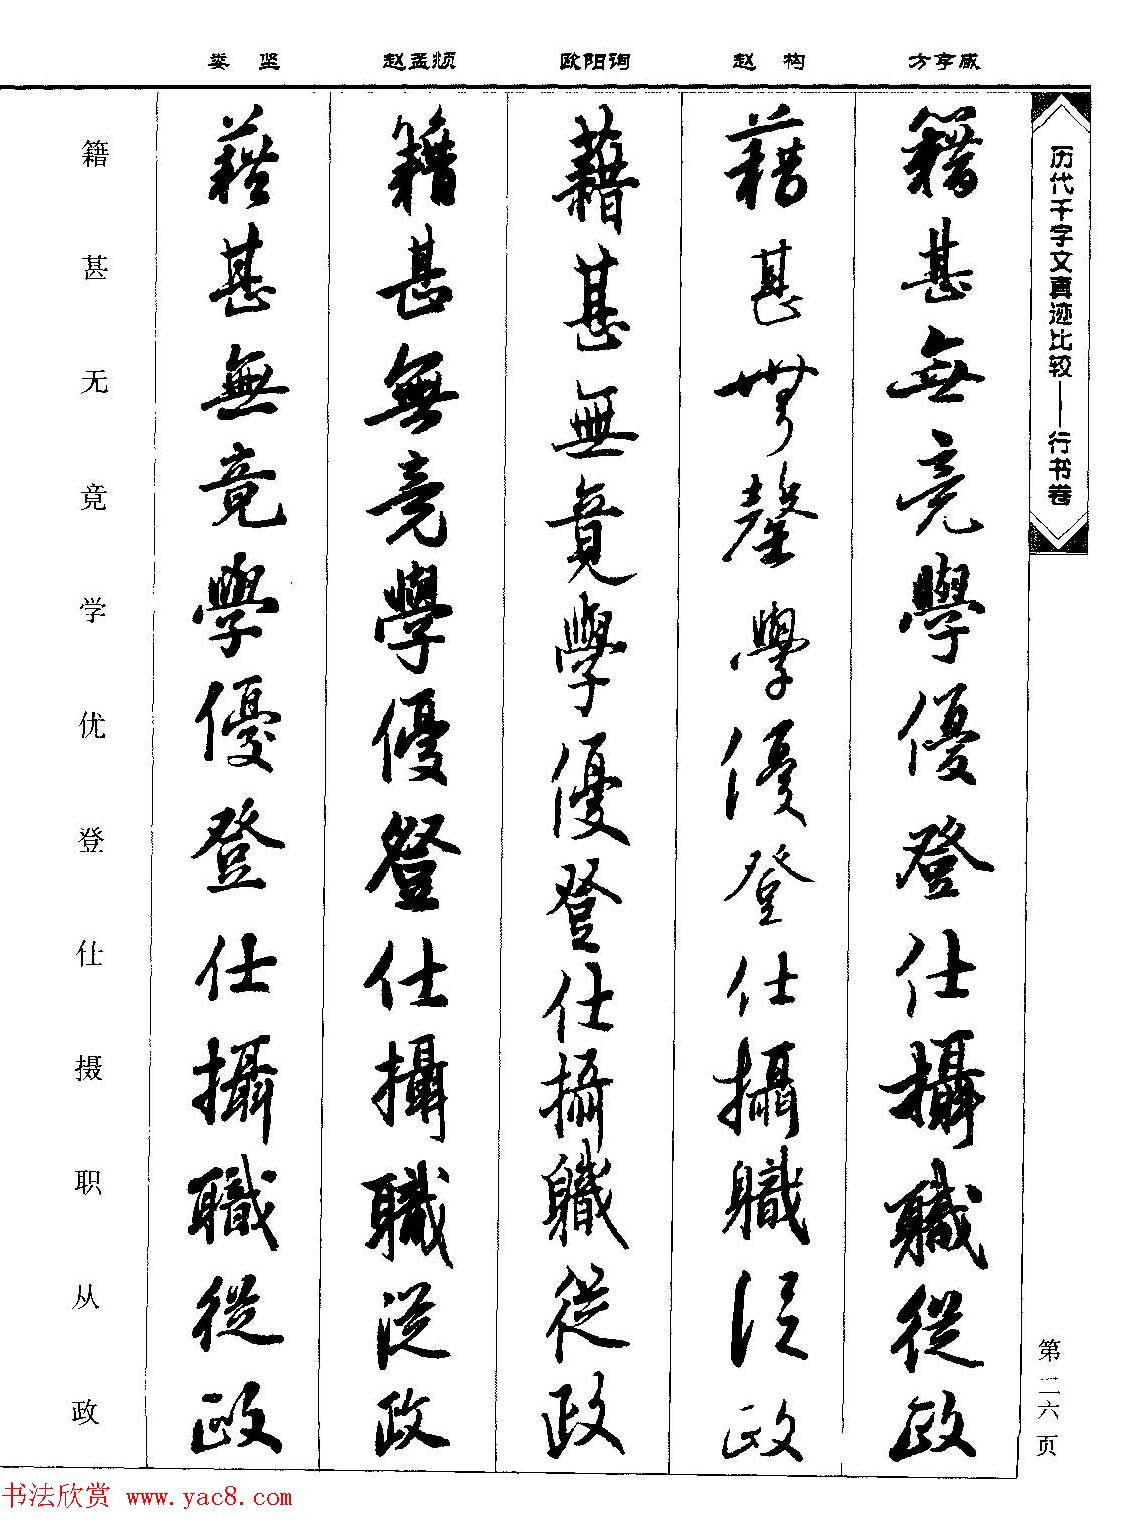 娄 坚 赵孟頫 欧阳询 赵 构 方亨咸
历代千字文真迹比较——行书卷
籍甚無竟學優登仕攝職從政
藉甚無罄學優登仕攝職從政
藉甚無竟學優登仕攝職從政
籍甚無竟學優登仕攝職從政
藉甚無竟學優登仕攝職從政
籍甚无竟学优登仕摄职从政
第二六页
书法欣赏 www.yac8.com